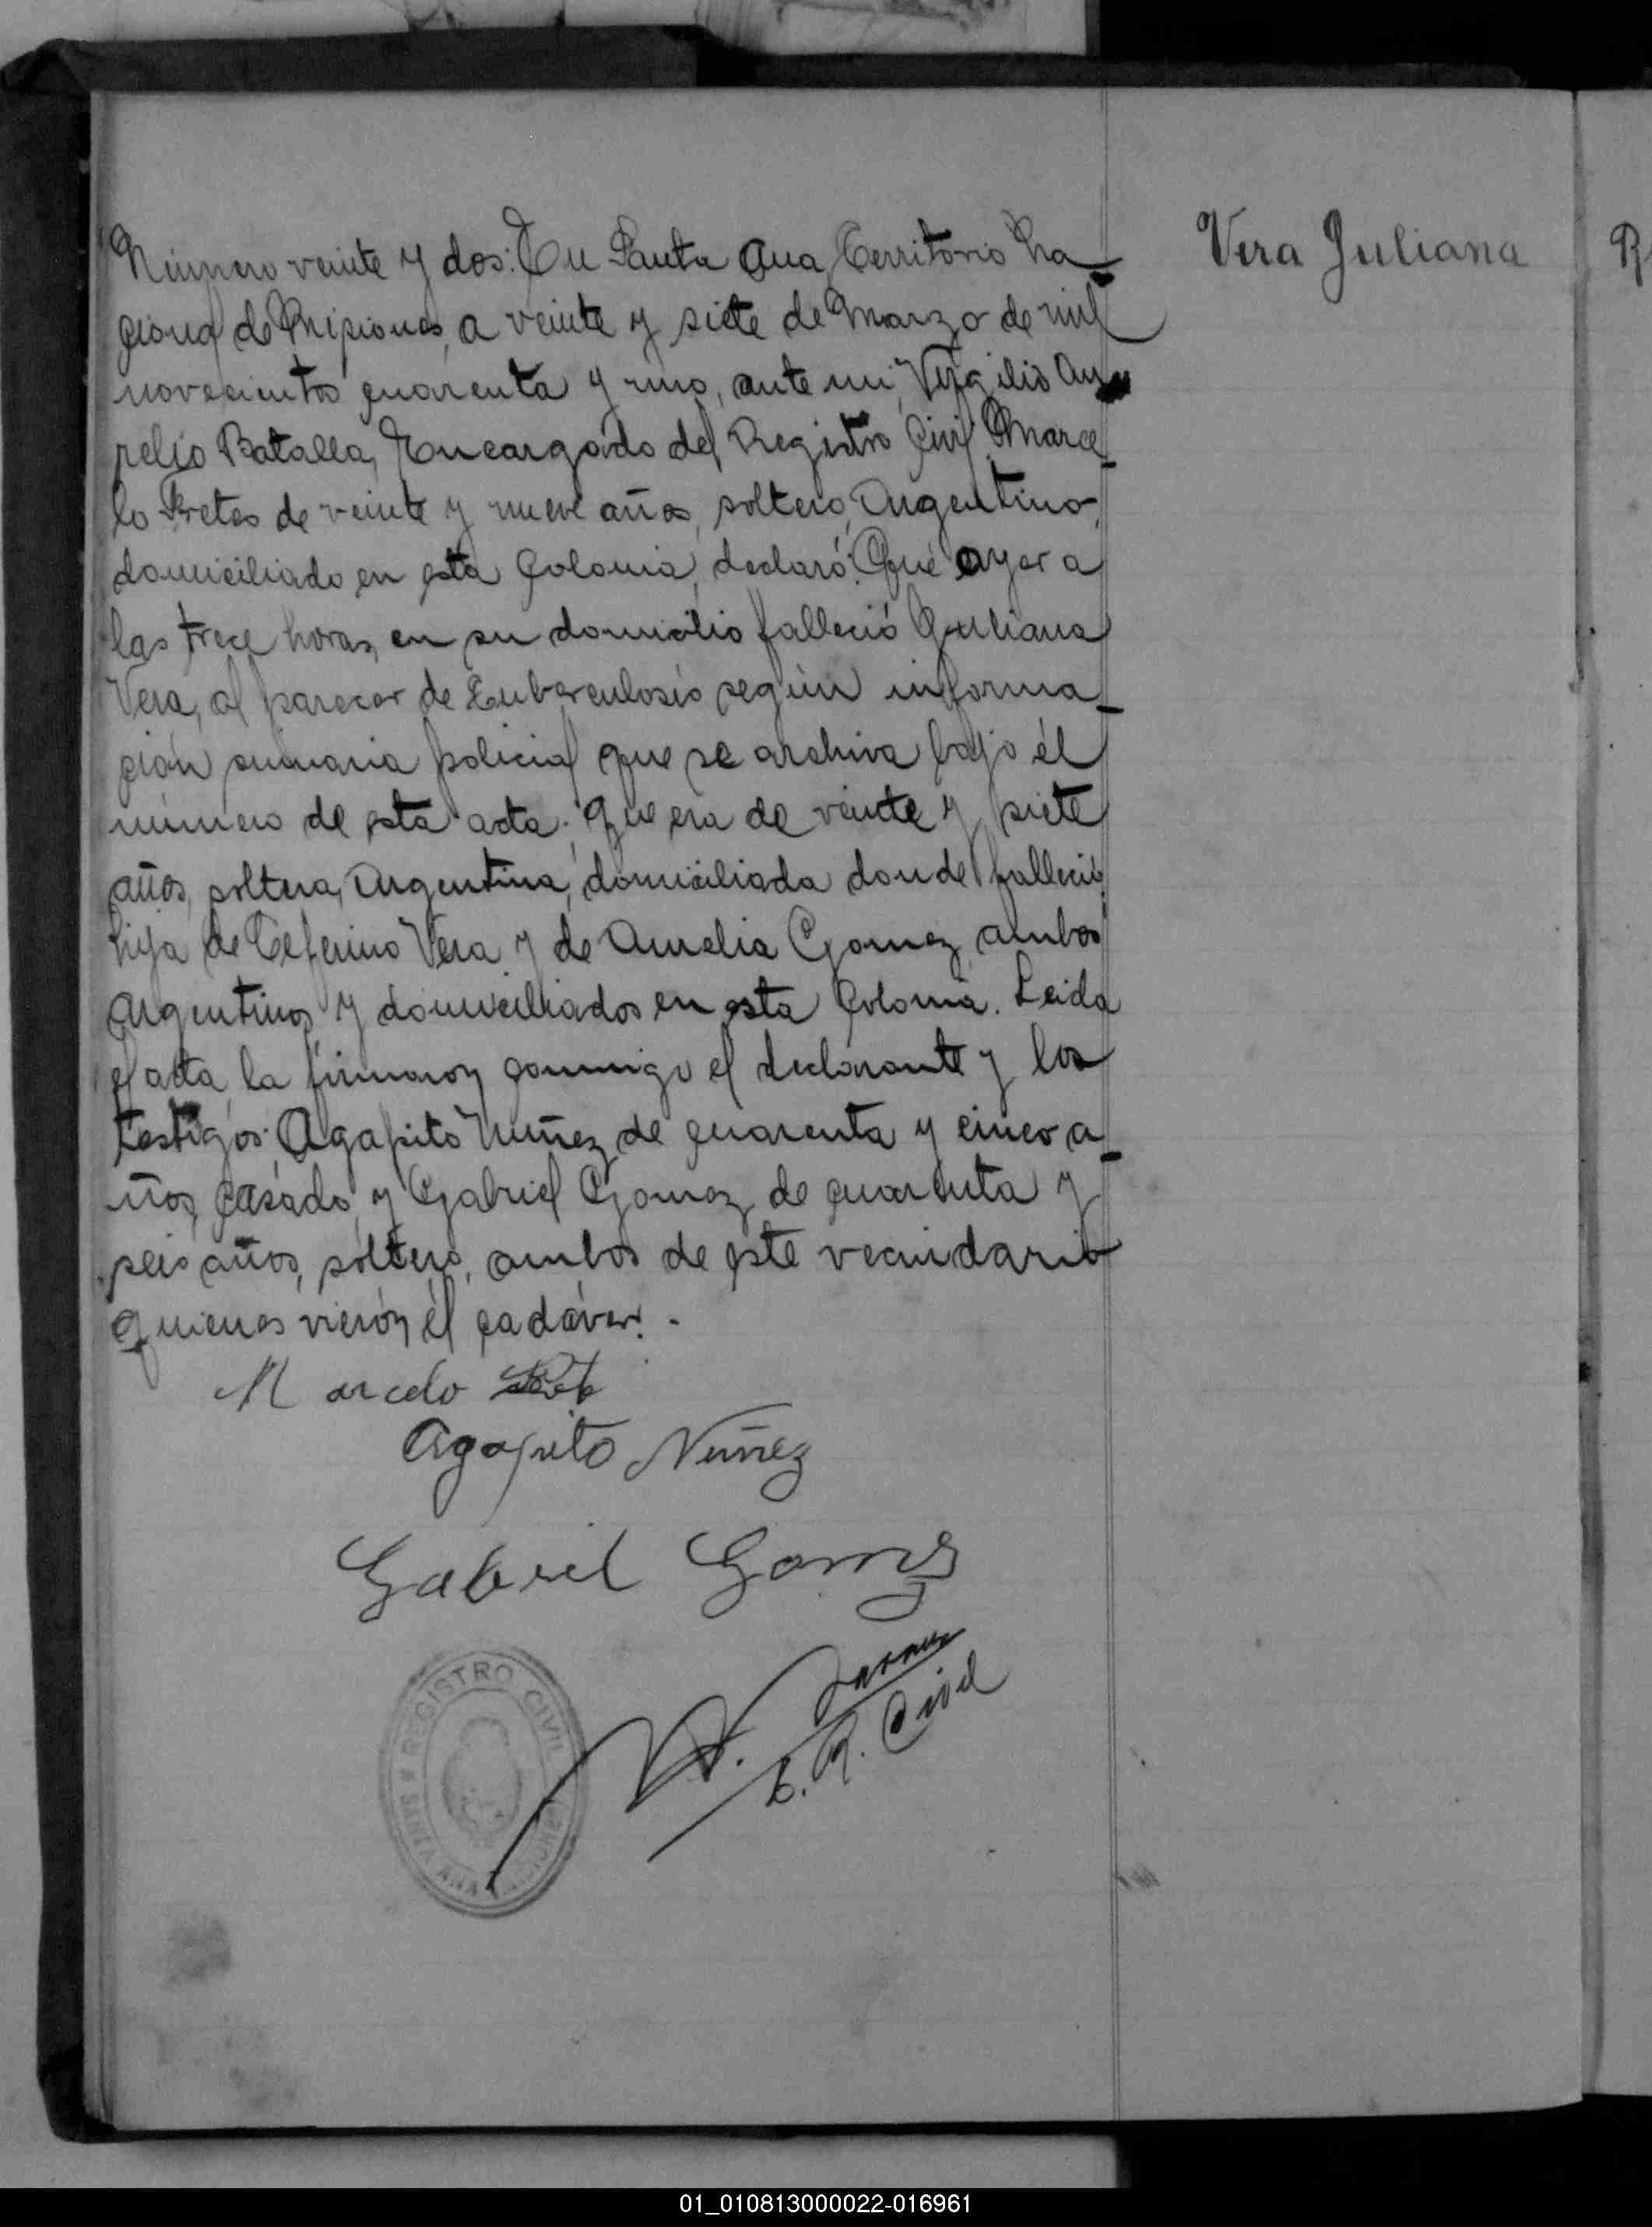 Número veinte y dos: En Santa Ana, Territorio Na-
cional de Misiones, a veinte y siete de Marzo de mil
novecientos cuarenta y uno, ante mi, Virgilio Au-
relio Batalla, Encargado del Registro Civil, Marce-
lo de veinte y nueve años, soltero, Argentino,
domiciliado en esta Colonia, declaró: Que ayer a
las trece horas, en su domicilio falleció Juliana
Vera, al parecer de Tuberculosis según informa-
ción sumaria policial que se archiva bajo él
número de esta acta; que era de veinte y siete
años, soltera, Argentina, domiciliada donde falleció,
hija de Ceferino Vera y de Amelia Gomez, ambos
Argentinos y domiciliados en esta Colonia. Leida
el acta, la firmaron conmigo el declarante y los
testigos: Agapito Nuñez, de cuarenta y cinco a-
ños, casado, y Gabriel Gomez, de cuarenta y
seis años, soltero, ambos de este vecindario
quienes vierón él cadáver. -
Marcelo
Agapito Nuñez
Gabriel Gomez
E. R. Civil
REGISTRO CIVIL
SANTA ANA
Vera Juliana
R
01_010813000022-016961